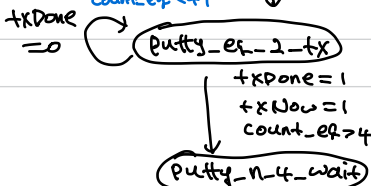 txDone
=0
putty_eq_2_tx
txDone = 1
txNow = 1
count_eq>4
putty_n_4_wait